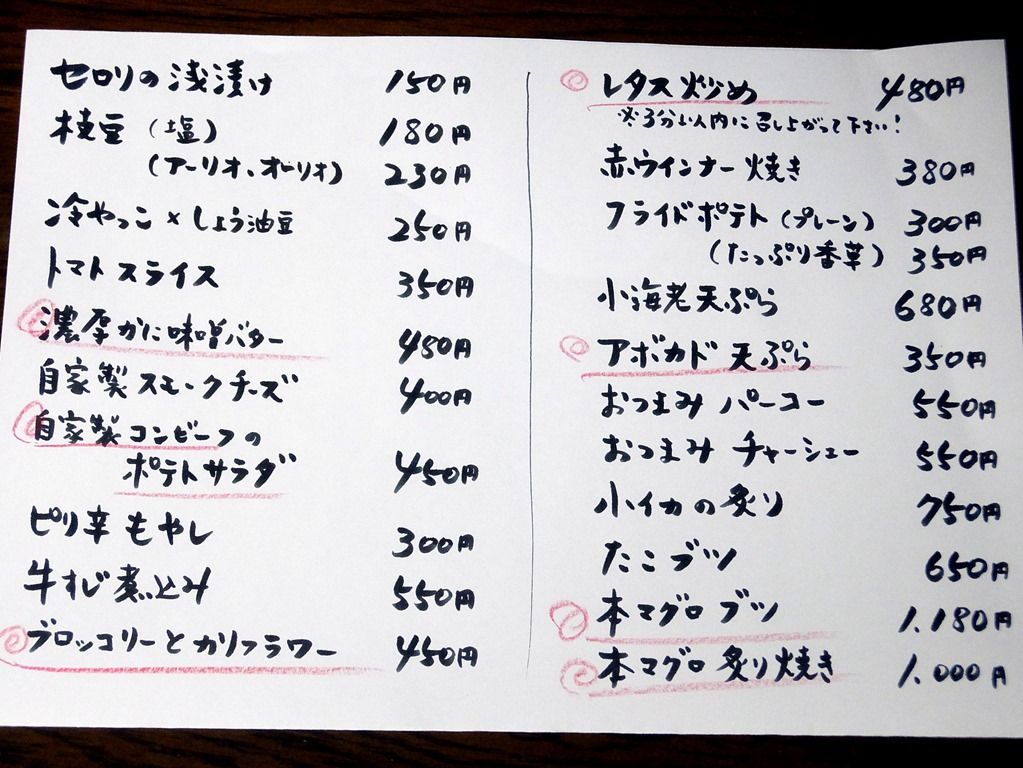 セロリの浅漬け 150円
枝豆（塩） 180円
（アーリオ、オーリオ） 230円
冷やっこ×しょう油豆 250円
トマトスライス 350円
濃厚かに味噌バター 480円
自家製スモークチーズ 400円
自家製コンビーフの
ポテトサラダ 450円
ピリ辛もやし 300円
牛すじ煮込み 550円
ブロッコリーとカリフラワー 450円
レタス炒め 480円
※3分以内に召し上がって下さい！
赤ウインナー焼き 380円
フライドポテト（プレーン） 300円
（たっぷり香草） 350円
小海老天ぷら 680円
アボカド天ぷら 350円
おつまみパーコー 550円
おつまみチャーシュー 550円
小イカの炙り 750円
たこブツ 650円
本マグロブツ 1.180円
本マグロ炙り焼き 1.000円